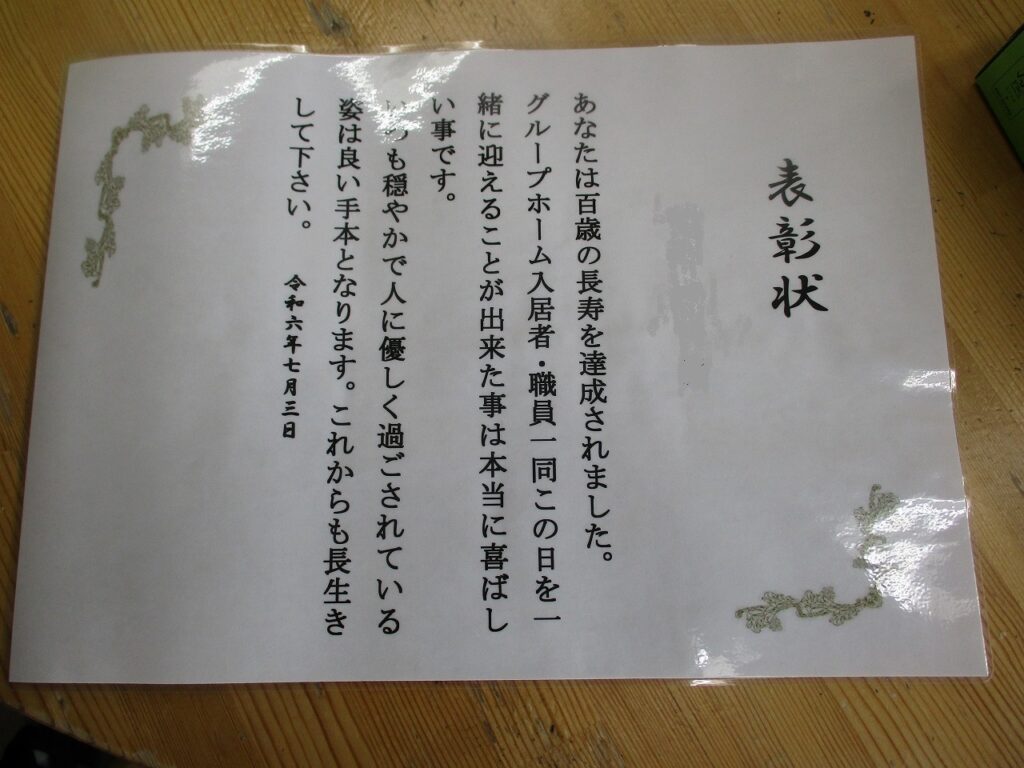 表彰状
あなたは百歳の長寿を達成されました。
グループホーム入居者・職員一同この日を一
緒に迎えることが出来た事は本当に喜ばし
い事です。
いつも穏やかで人に優しく過ごされている
姿は良い手本となります。これからも長生き
して下さい。
令和六年七月三日